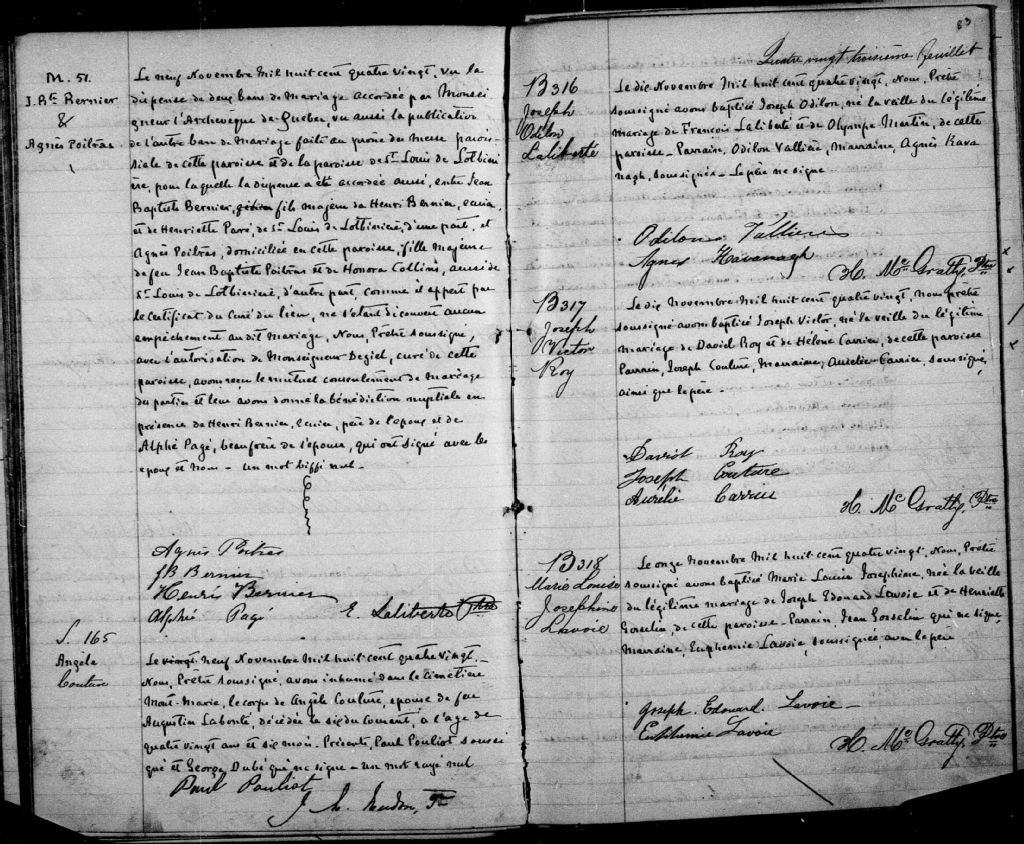 M. 51.
J. Bte Bernier
&
Agnès Poitras
Le neuf Novembre mil huit cent quatre vingt, vu la
dispense de deux bans de mariage accordée par Monsei
gneur l'Archevêque de Québec, vu aussi la publication
de l'autre ban de mariage faite au prône de messe parois-
siale de cette paroisse et de la paroisse de St Louis de Lotbini
ère, pour laquelle la dispense a été accordée aussi, entre Jean
Baptiste Bernier, fils majeur de Henri Bernier, écuier,
et de Henriette Paré, de St Louis de Lotbinière, d'une part, et
Agnès Poitras, domiciliée en cette paroisse, fille majeure
de feu Jean Baptiste Poitras et de Honora Collins, aussi de
St Louis de Lotbinière, d'autre part, comme il appert par
le certificat du Curé du lieu, ne s'étant découvert aucun
empêchement au dit mariage, Nous, Prêtre soussigné,
avec l'autorisation de Monseigneur Deziel, curé de cette
paroisse, avons reçu le mutuel consentement de mariage
des parties et leur avons donné la bénédiction nuptiale en
présence de Henri Bernier, écuier, père de l'époux et de
Alphé Pagé, beaufrère de l'épouse, qui ont signé avec les
époux et nous - Un mot biffé nul -
Agnès Poitras
J B Bernier
Henri Bernier
Alphé Pagé
E. Laliberté Ptre
S. 165
Angèle
Couture
Le vingt neuf Novembre mil huit cent quatre vingt
Nous, Prêtre soussigné, avons inhumé dans le cimetière
Mont-Marie, le corps de Angèle Couture, épouse de feu
Augustin Labonté, décédée le six du courant, à l'age de
quatre vingt ans et six mois. Présents, Paul Pouliot soussi
gné et George Dubé qui ne signe - Un mot rayé nul
Paul Pouliot
83
Quatre vingt troisième feuillet
B316
Joseph
Odilon
Laliberté
Le dix Novembre mil huit cent quatre vingt, Nous, Prêtre
soussigné avons baptisé Joseph Odilon, né la veille du légitime
mariage de François Laliberté et de Olympe Martin, de cette
paroisse - Parrain, Odilon Vallière, Marraine, Agnès Kava
nagh, soussignés - Le père ne signe
Odilon Vallieres
Agnes Kavanagh
H. McGratty, Ptre
B317
Joseph
Victor
Roy
Le dix Novembre mil huit cent quatre vingt, nous, prêtre
soussigné avons baptisé Joseph Victor, né la veille du légitime
mariage de David Roy et de Hélène Carrier, de cette paroisse
Parrain, Joseph Couture, Marraine, Aurélie Carrier, soussignés,
ainsi que le père -
David Roy
Joseph Couture
Aurélie Carrier
H. McGratty, Ptre
B318
Marie Louise
Josephine
Lavoie
Le onze Novembre mil huit cent quatre vingt, Nous, Prêtre
soussigné avons baptisé Marie Louise Josephine, née la veille
du légitime mariage de Joseph Edouard Lavoie et de Henriette
Gosselin, de cette paroisse - Parrain, Jean Gosselin qui ne signe,
Marraine, Euphemie Lavoie, soussignée avec le père
Joseph. Edouard. Lavoie -
Euphemie Lavoie
H. McGratty, Ptre